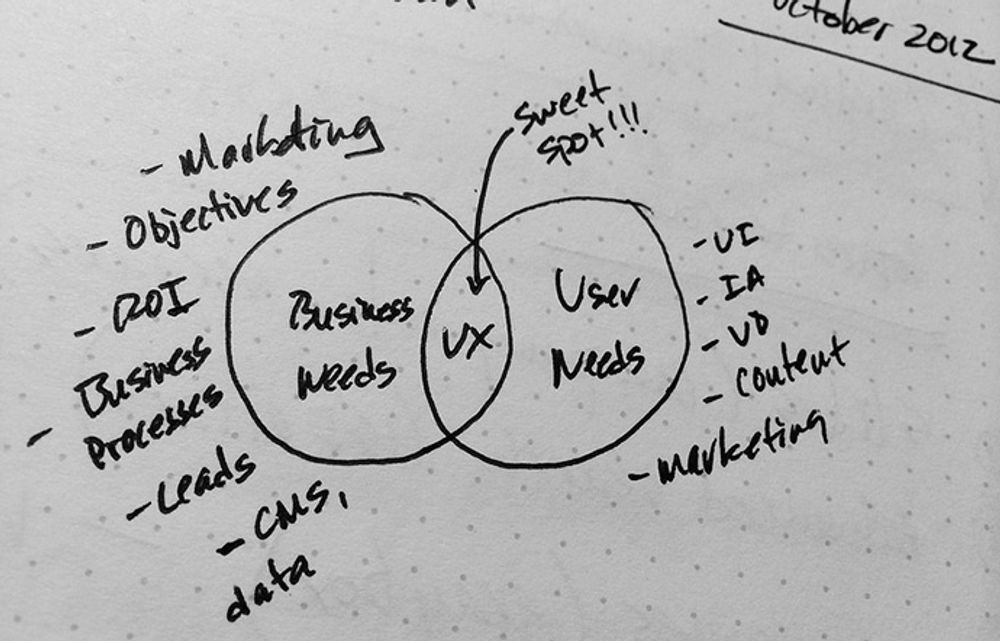 October 2012
sweet
spot!!!
- Marketing
- Objectives
- ROI
- Business
Processes
- Leads
- CMS,
data
Business
Needs
UX
User
Needs
- UI
- IA
- VD
- content
- marketing